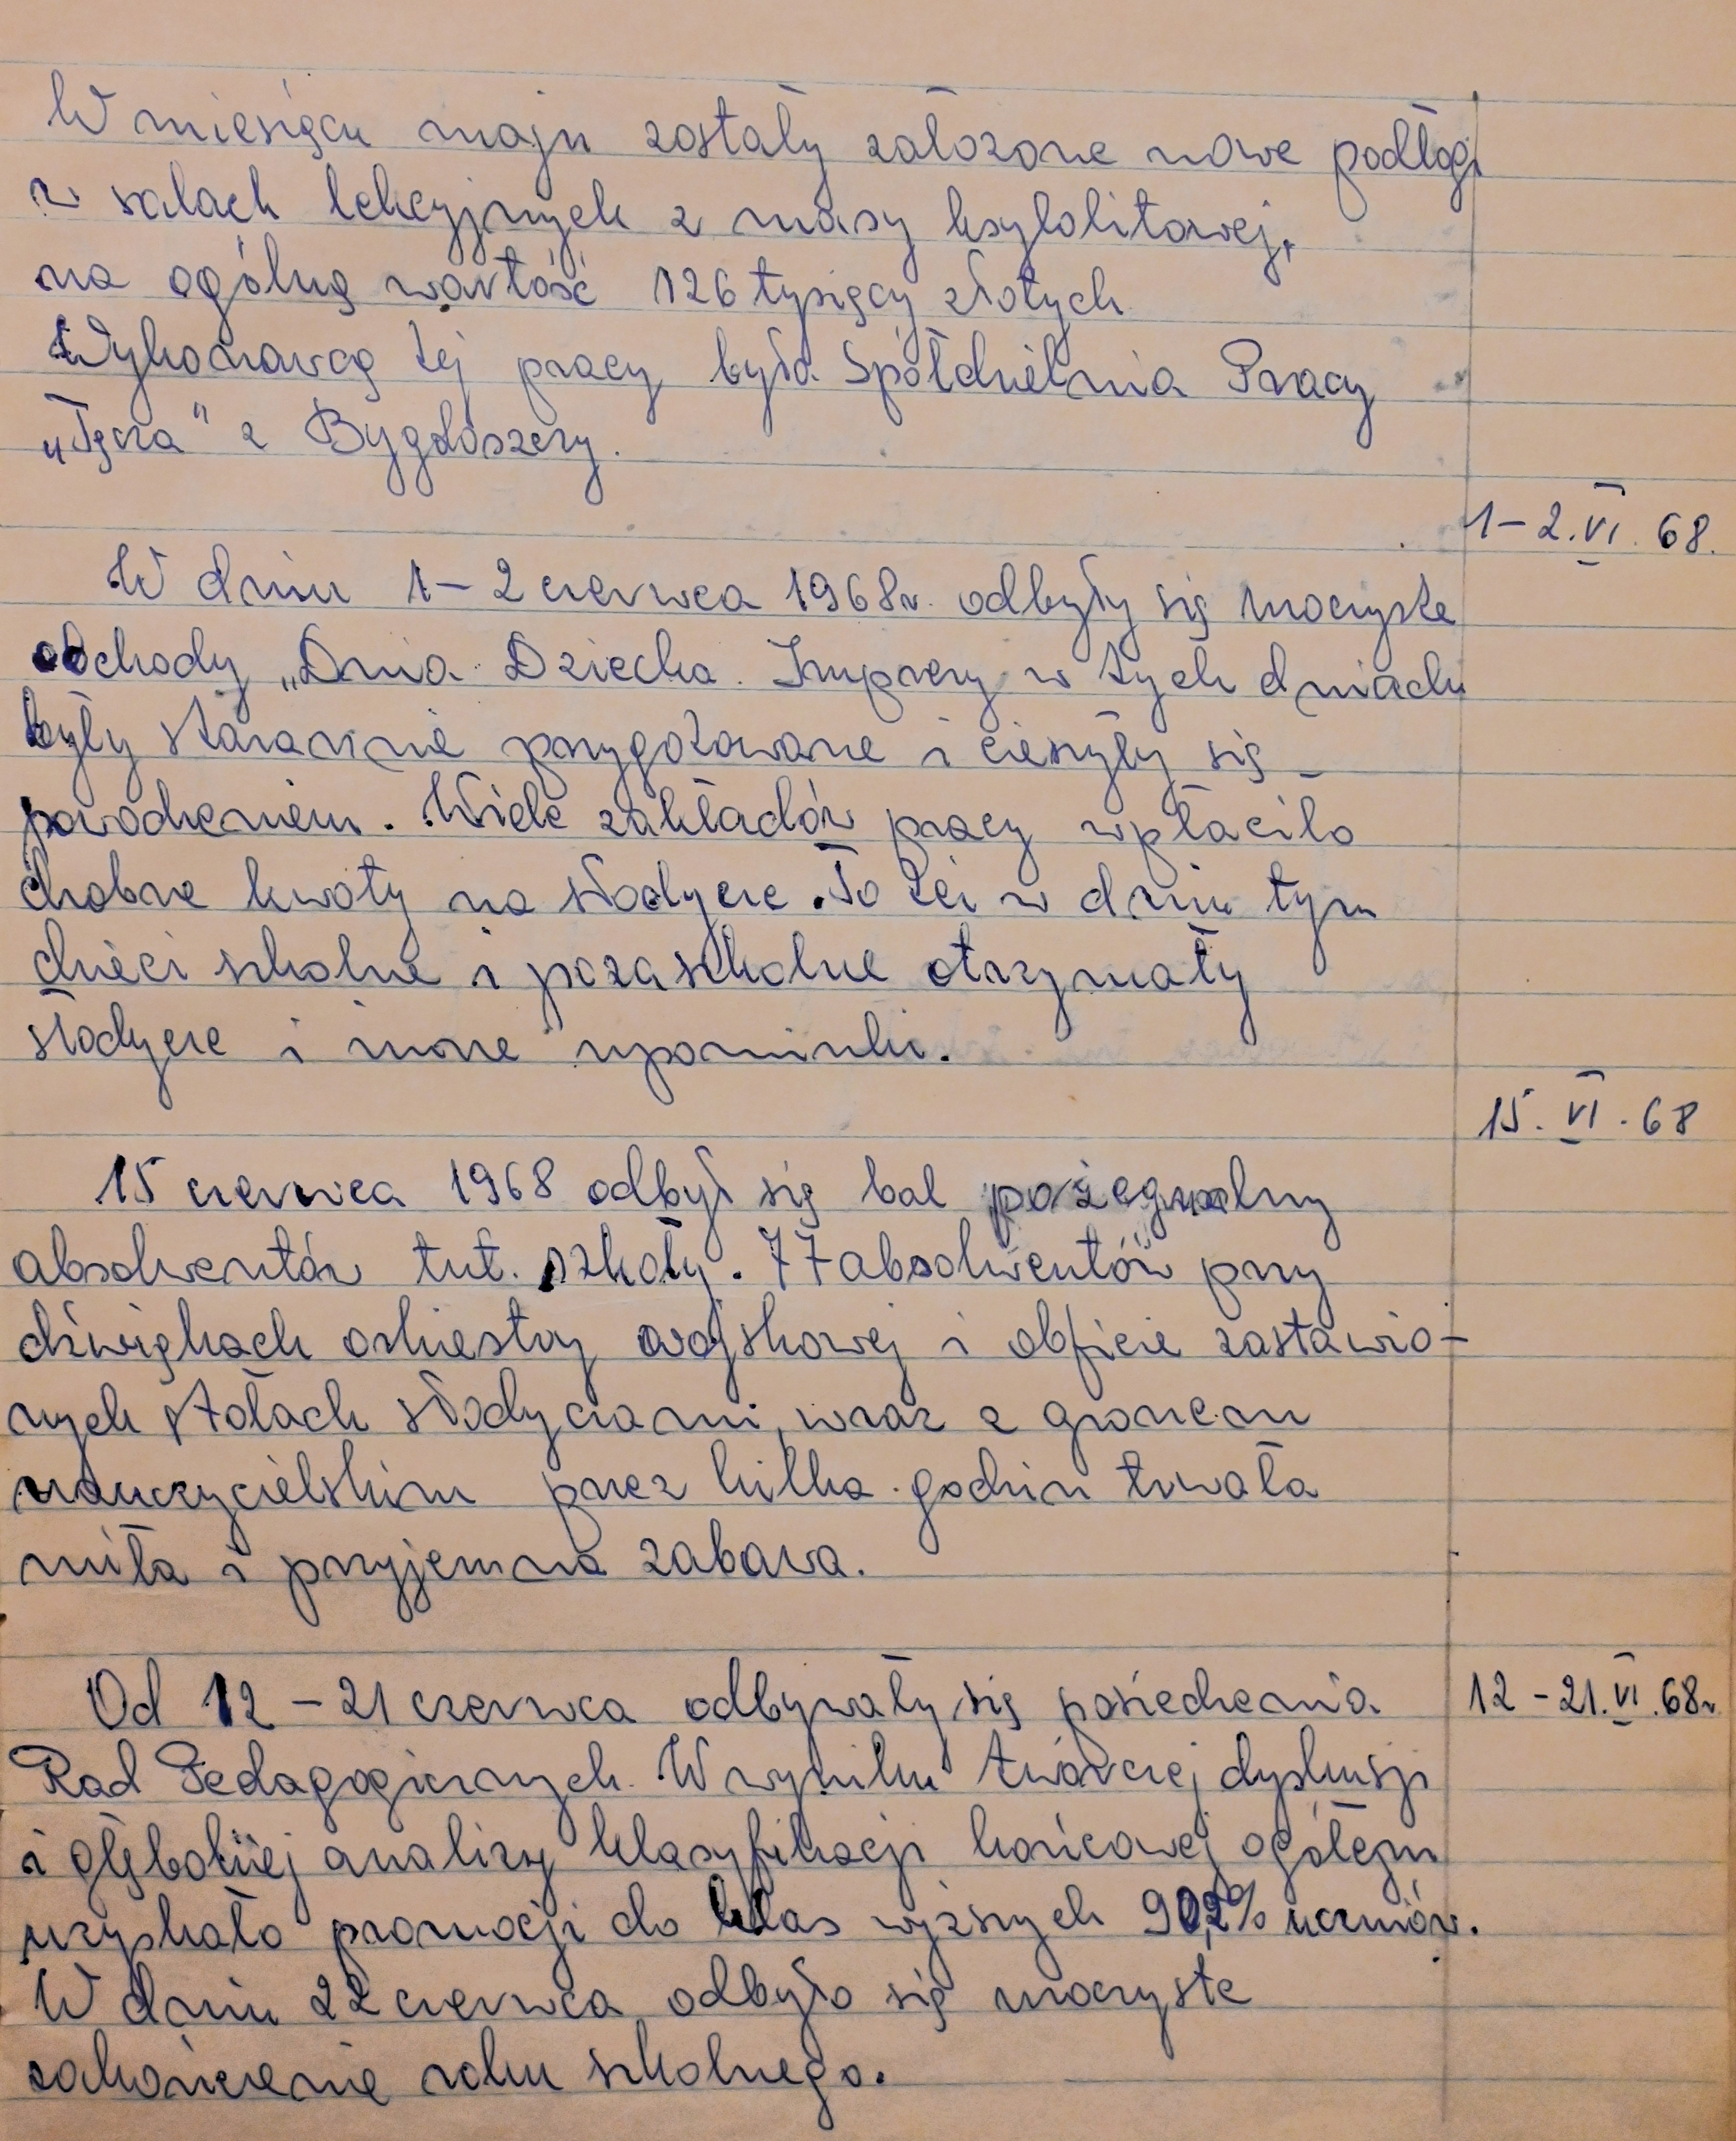 W miesiącu maju zostały założone nowe podłogi
w salach lekcyjnych z masy ksylolitowej,
na ogólną wartość 126 tysięcy złotych
Wykonawcą tej pracy była Spółdzielnia Pracy
„Tęcza" z Bygdoszczy.
1–2.VI.68.
W dniu 1–2 czerwca 1968r. odbyły się uroczyste
obchody „Dnia Dziecka. Imprezy w tych dniach
były starannie przygotowane i cieszyły się
powodzeniem. Wiele zakładów pracy wpłaciło
drobne kwoty na słodycze. To też w dniu tym
dzieci szkolne i pozaszkolne otrzymały
słodycze i inne upominki.
15.VI.68
15 czerwca 1968 odbył się bal pożegnalny
absolwentów tut. szkoły. 77 absolwentów przy
dźwiękach orkiestry wojskowej i obficie zastawio-
nych stołach słodyczami, wraz z gronem
nauczycielskim przez kilka godzin trwała
miła i przyjemna zabawa.
Od 12 – 21 czerwca odbywały się posiedzenia 12 – 21.VI.68r
Rad Pedagogicznych. W wyniku twórczej dyskusji
i głębokiej analizy klasyfikacji końcowej ogółem
uzyskało promocji do klas wyższych 90,2% uczniów.
W dniu 22 czerwca odbyło się uroczyste
zakończenie roku szkolnego.